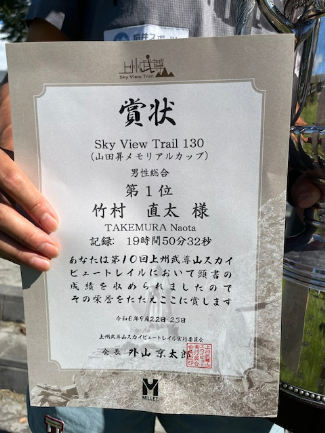 上州武尊
Sky View Trail
賞状
Sky View Trail 130
(山田昇メモリアルカップ)
男性総合
第1位
竹村 直太 様
TAKEMURA Naota
記録: 19時間50分32秒
あなたは第10回上州武尊山スカイ
ビュートレイルにおいて頭書の
成績を収められましたので
その栄誉をたたえここに賞します
令和6年9月22日-23日
上州武尊山スカイビュートレイル実行委員会
会長 外山京太郎
MILLET